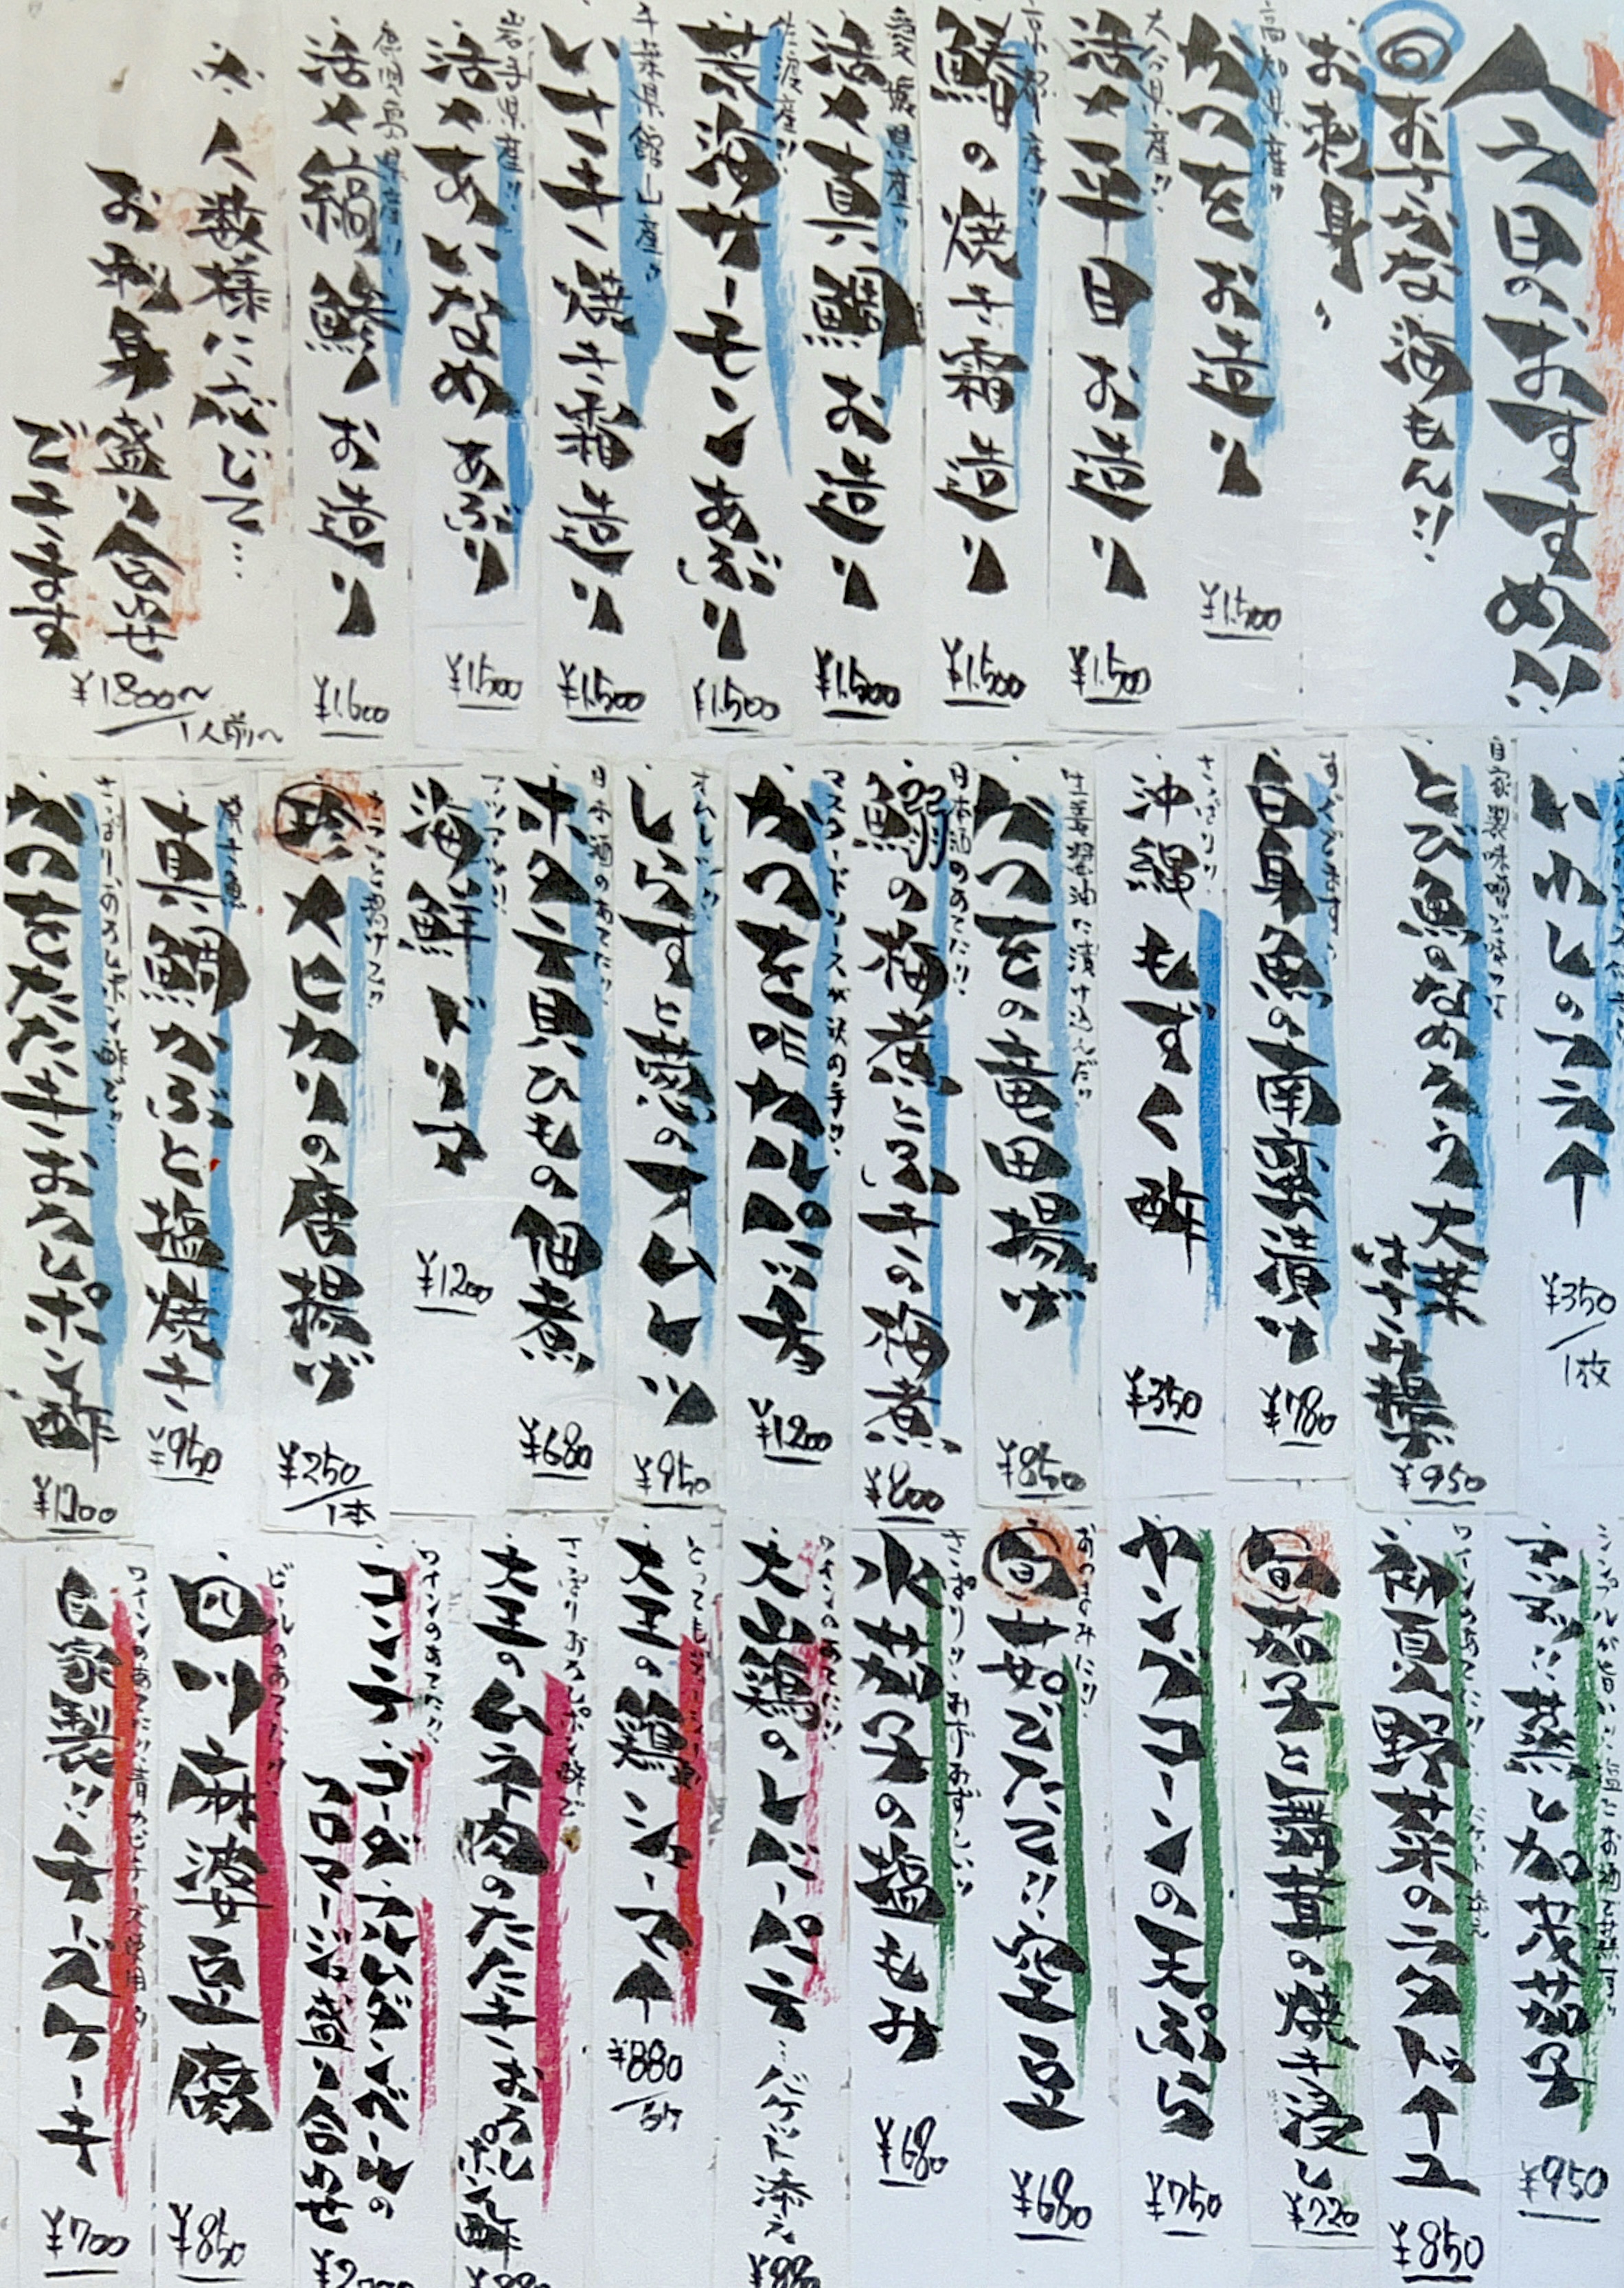 今日のおすすめ!!
旬 おすすめな海もん!!
お刺身、
高知県産!!
かつをお造り
¥1500
大分県産!!
活〆平目お造り
¥1500
京都産!!
鰆の焼き霜造り
¥1500
愛媛県産!!
活〆真鯛お造り
¥1500
佐渡産!!
荒海サーモンあぶり
¥1500
千葉県館山産!!
いさき焼き霜造り
¥1500
岩手県産!!
活〆あいなめあぶり
¥1500
鹿児島県産!!
活〆縞鯵お造り
¥1600
人数様に応じて…
お刺身盛り合せ
できます
¥1800〜
1人前〜
いわしのフライ
¥350/1枚
とび魚のなめろう大葉
はさみ揚げ
¥950
白身魚の南蛮漬け
¥780
さっぱり!!
沖縄もずく酢
¥350
生姜醤油に漬け込んだ!!
かつをの竜田揚げ
¥850
日本酒のあてに!!
¥800
マスタードソースが決め手!!
かつを カルパッチョ
¥1200
オムレツ!!
しらすと葱のオムレツ
¥950
日本酒のあてに!!
ホタテ貝ひもの佃煮
¥680
アツアツ!!
海鮮ドリア
¥1200
珍 メヒカリの唐揚げ
¥250/1本
焼き魚
真鯛かぶと塩焼き
¥950
かつをたたきおろしポン酢
¥1200
蒸し加茂茄子
¥950
ワインのあてに!!
初夏野菜のラタトゥイユ
¥850
旬 茄子と舞茸の焼き浸し
¥720
ヤングコーンの天ぷら
¥750
おつまみに!!
旬 茹でたて!!空豆
¥680
さっぱり!!
水茄子の塩もみ
¥680
ワインのあてに!!
大山鶏のレバーパテ…バケット添え
大山の鶏シューマイ
¥880
さっぱりおろしポン酢で
大山のムネ肉のたたきおろしポン酢
ワインのあてに!!
コンテ ゴーダ アムダンベールの
フロマージュ盛り合わせ
ビールのあてに!!
四川麻婆豆腐
¥850
ワインのあてに!!青カビチーズ使用!!
自家製!!チーズケーキ
¥700